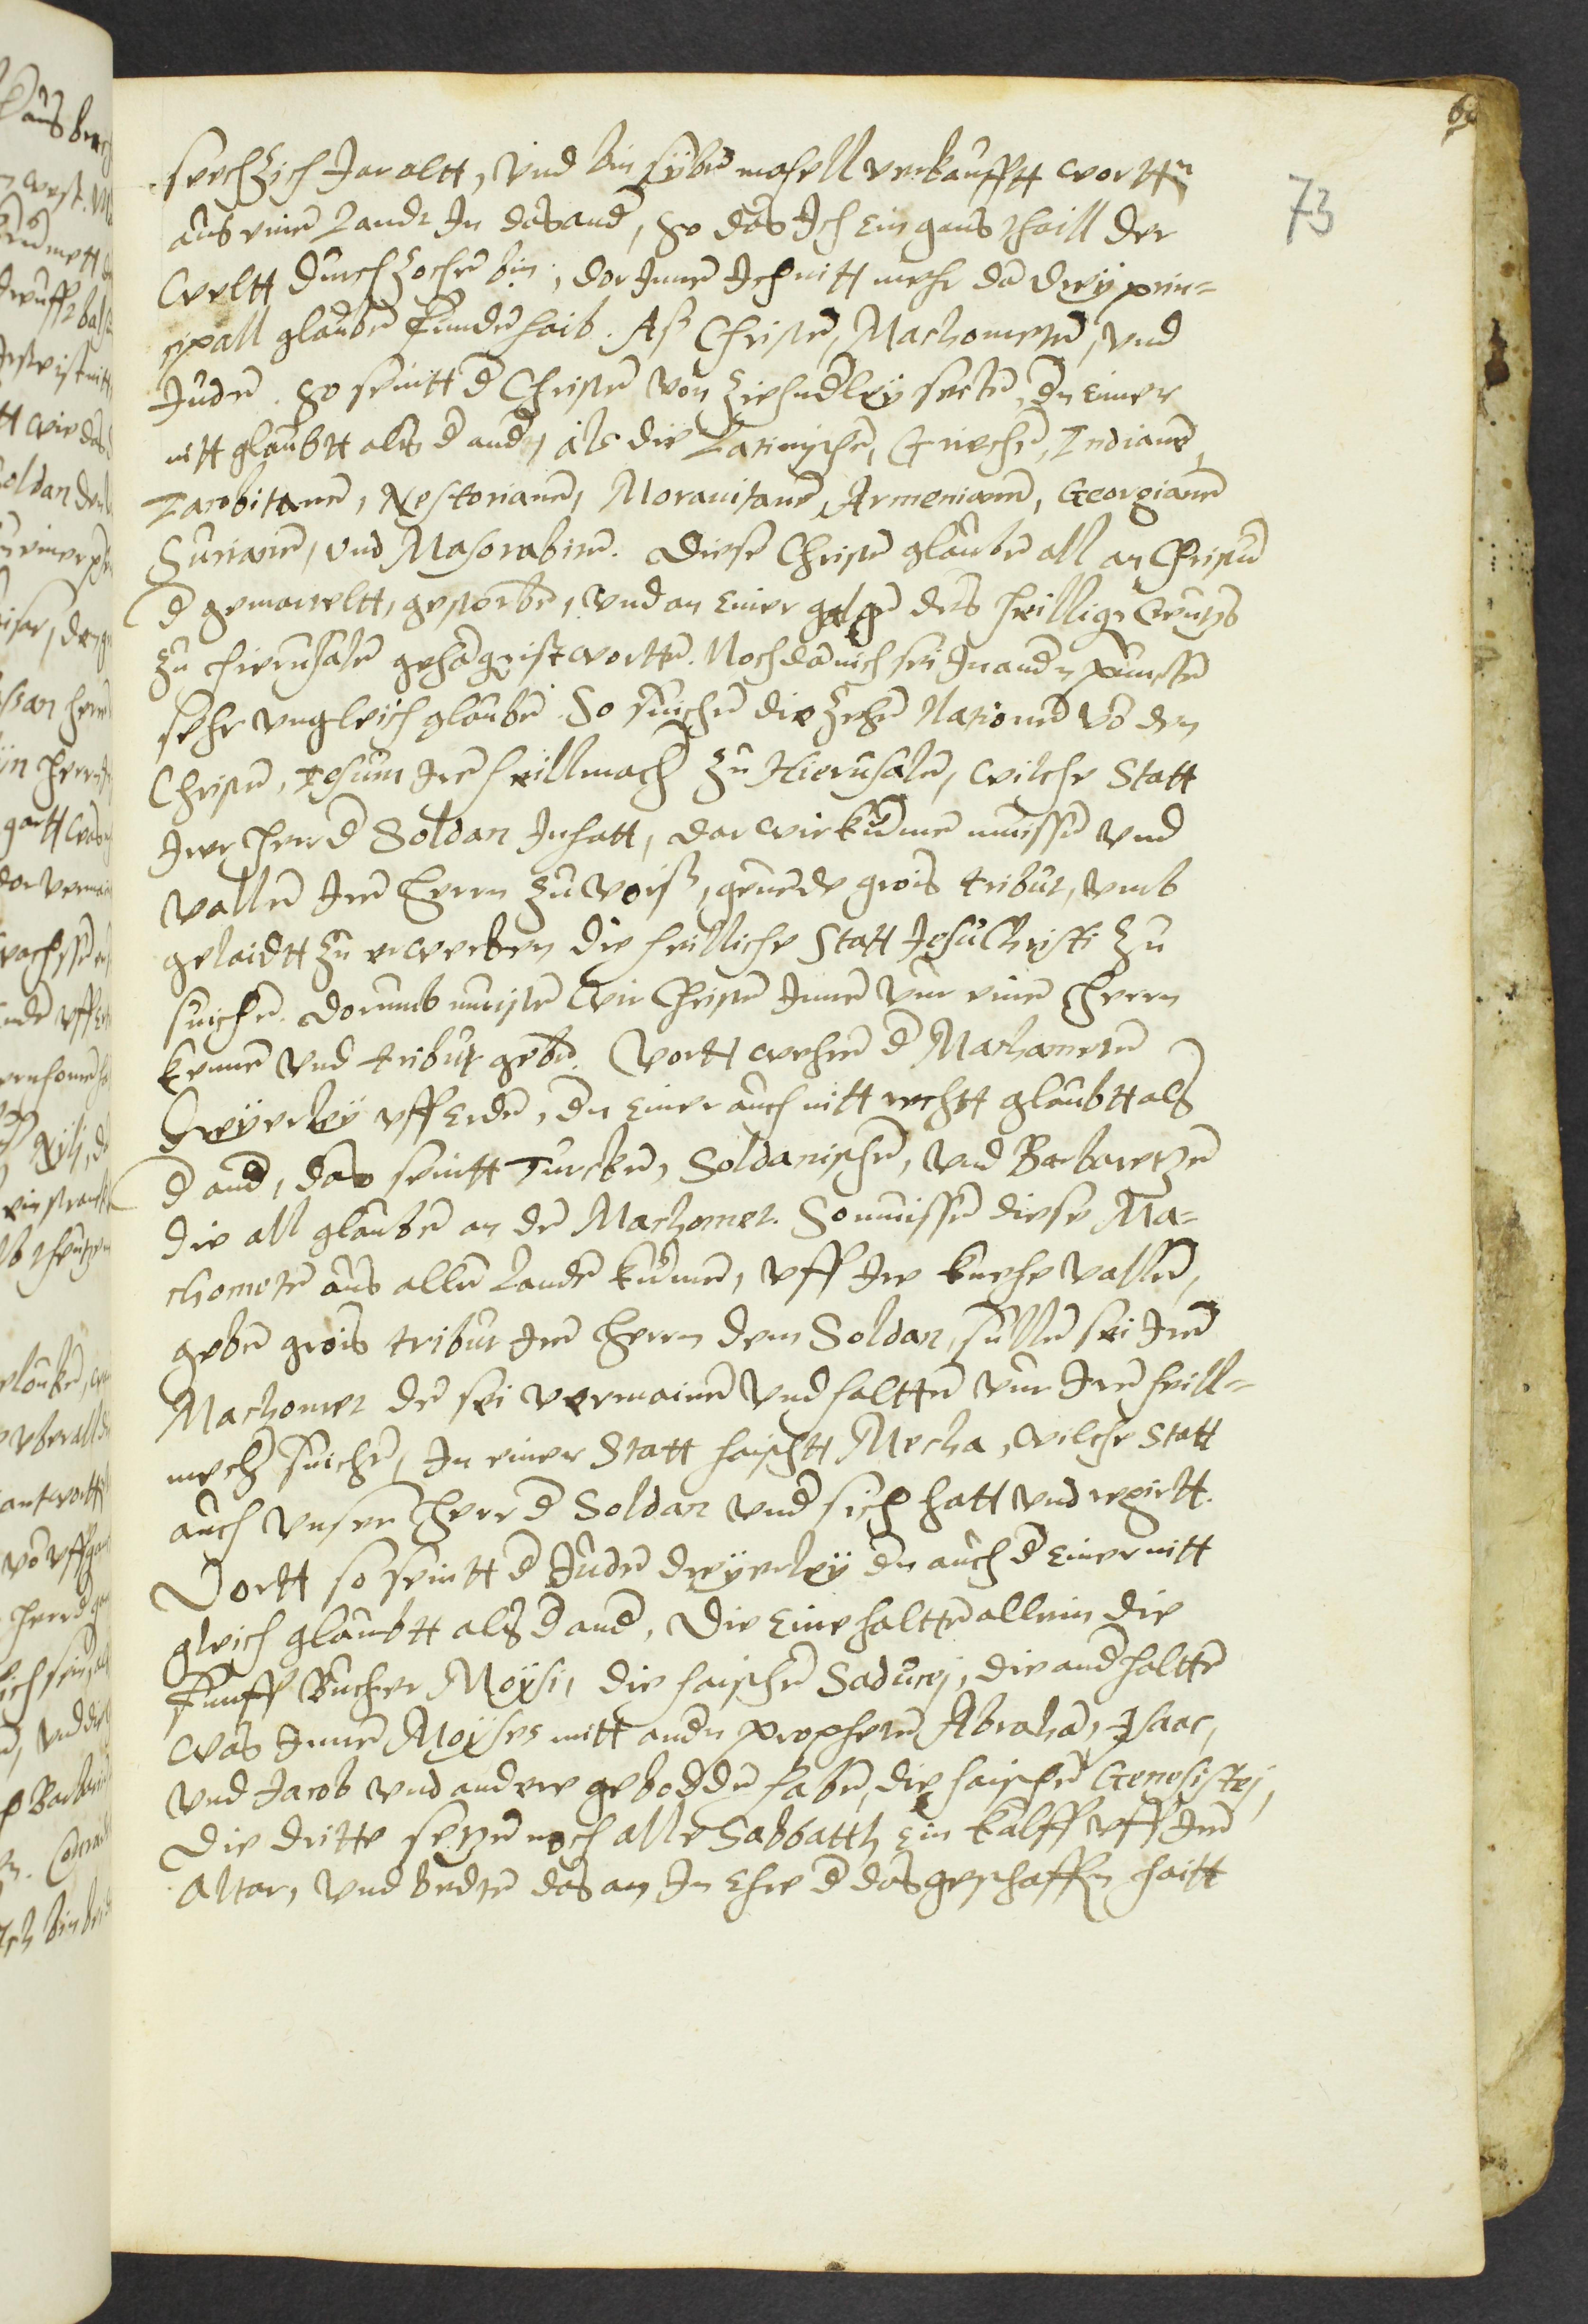 73
sechzich Jar altt, vnd bin syben mahell verkaufftt wortten
aus einem Lande In das ander, so das Ich Ein gans thaill der
Weltt durchzochen bin, dor Innen Ich nitt mehr dan drey prin=
cipall glauben funden haib. Als Christen, Machometen, vnd
Juden. So seintt der Christen von ziehnderley secten, der Einer
nitt glaubtt als der ander, als die Latinischen, Griechen, Indianen,
Jacobitanen, Nestorianen, Morauitanen, Armenianen, Georgianen
Surianen, vnd Masorabiten. Diese Christen glauben all an Christum
der gemarteltt, gestorben, vnd an Einer galgen des heilligen Creutzs
zu Hierusalem gehangen ist wortten. Noch dan nich sei In andern puncten
sehr vngleich glauben. So suichen die zehen Nationen von den
Christen, Jesum Iren heillmacher zu Hierusalem, wilche Statt
Iwer Herr der Soldan Inhatt, dar wir kummen muissen vnd
vallen Iren Herrn zu voiss, geuende grois tribut, vmb
gelaidtt zu erwerben die heilliche Statt Jesu Christi zu
suichen. Dorumb muisten wir Christen Innen vur einen Herrn
kennen vnd tribut geben. Vortt wehren der Machameten
Dreyerley vff Erden, der Einer auch nitt rechtt glaubtt als
der ander, das seintt Turcken, Soldanischen, vnd Barbaretzen
die all glauben an den Machomet. So muissen diese Ma=
chometen aus allen Landen kummen, vff Ire knehe vallen,
geben grois tribut Iren Herrn dem Soldan, sullen sei Iren
Machomet den sei vermainen vnd haltten vur Iren heill=
mecher suichen, In einer Statt haischtt Mecha, wilche Statt
auch vnser Herr der Soldan vnder sich hatt vnd regirtt.
Vortt so seintt der Juden dreyerley der auch der Einer nitt
gleich glaubtt als der ander, Die Eine haltten allein die
funff Bucher Moysi, die haischen Saducej, die ander haltten
was Innen Moyses mitt andern propheten Abraham, Isaac,
vnd Jacob vnd andere gebodden haben, die haischen Genesistej,
Die dritte setzen noch alle Sabbatth Ein kalff vff Iren
Altar, vnd bedten das an In Ehre der das geschaffen haitt